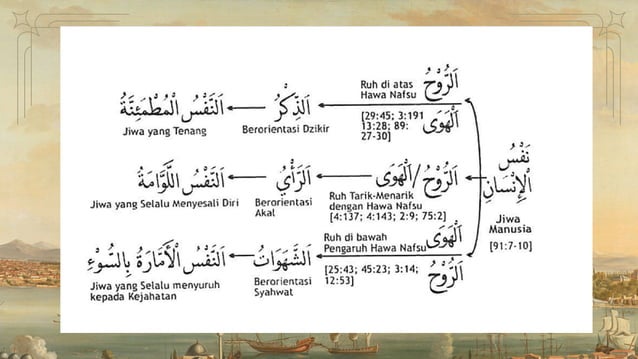 اَلرُّوْحُ
Ruh di atas
Hawa Nafsu
اَلْهَوَى
[29:45; 3:191
13:28; 89:
27-30]
اَلذِّكْرُ
Berorientasi Dzikir
اَلنَّفْسُ الْمُطْمَئِنَّةُ
Jiwa yang Tenang
نَفْسُ
الْإِنْسَانِ
Jiwa
Manusia
[91:7-10]
اَلرُّوْحُ/اَلْهَوَى
Ruh Tarik-Menarik
dengan Hawa Nafsu
[4:137; 4:143; 2:9; 75:2]
اَلرَّأْيُ
Berorientasi
Akal
اَلنَّفْسُ اللَّوَّامَةُ
Jiwa yang Selalu Menyesali Diri
اَلْهَوَى
Ruh di bawah
Pengaruh Hawa Nafsu
اَلرُّوْحُ
[25:43; 45:23; 3:14;
12:53]
اَلشَّهَوَاتُ
Berorientasi
Syahwat
اَلنَّفْسُ الْأَمَّارَةُ بِالسُّوْءِ
Jiwa yang Selalu menyuruh
kepada Kejahatan